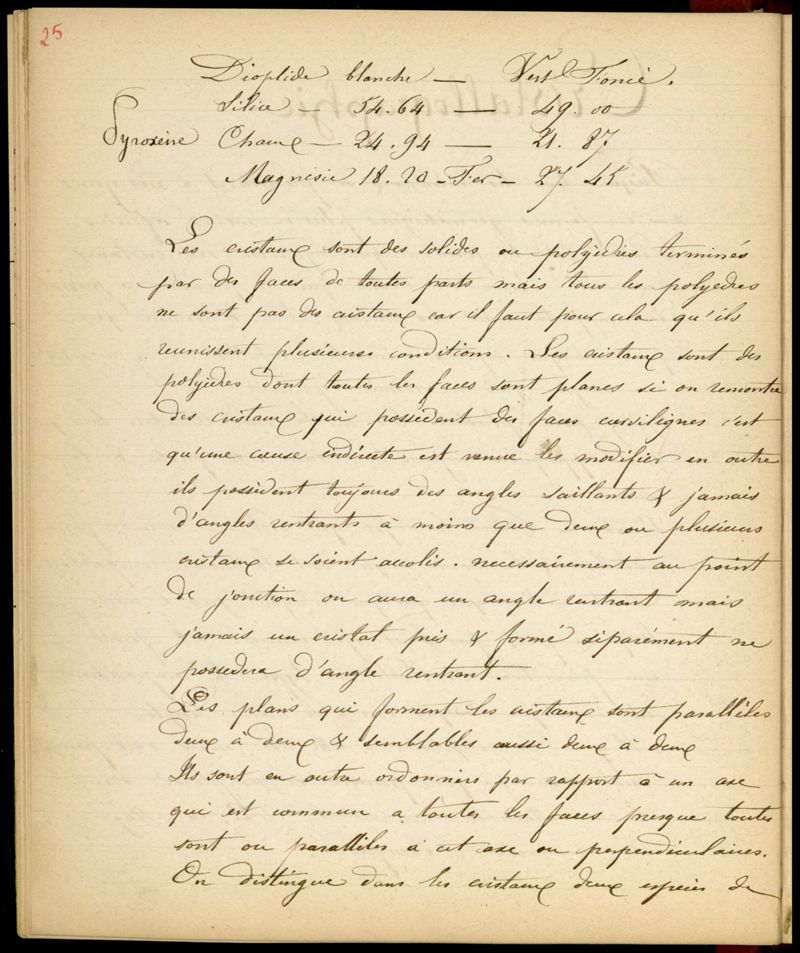 25
Dioplide blanche — Vert Foncé.
Silice — 54.64 — 49.00
Pyroxène Chaux — 24.94 — 21.87
Magnésie 18.20 - Fer - 27.45
Les cristaux sont des solides ou polyèdres terminés
par des faces de toutes parts mais tous les polyedres
ne sont pas des cristaux car il faut pour cela qu'ils
reunissent plusieurs conditions. Les cristaux sont des
polyèdres dont toutes les faces sont planes si on rencontre
des cristaux qui possèdent des faces curvilignes c'est
qu'une cause indirecte est venue les modifier en outre
ils possèdent toujours des angles saillants & jamais
d'angles rentrants à moins que deux ou plusieurs
cristaux se soient accolés. necessairement au point
de jonction on aura un angle rentrant mais
jamais un cristal pris & formé séparément ne
possedera d'angle rentrant.
Les plans qui forment les cristaux sont parallèles
deux à deux & semblables aussi deux à deux
Ils sont en outre ordonnés par rapport à un axe
qui est commun a toutes les faces presque toutes
sont ou parallèles à cet axe ou perpendiculaires.
On distingue dans les cristaux deux espèces de